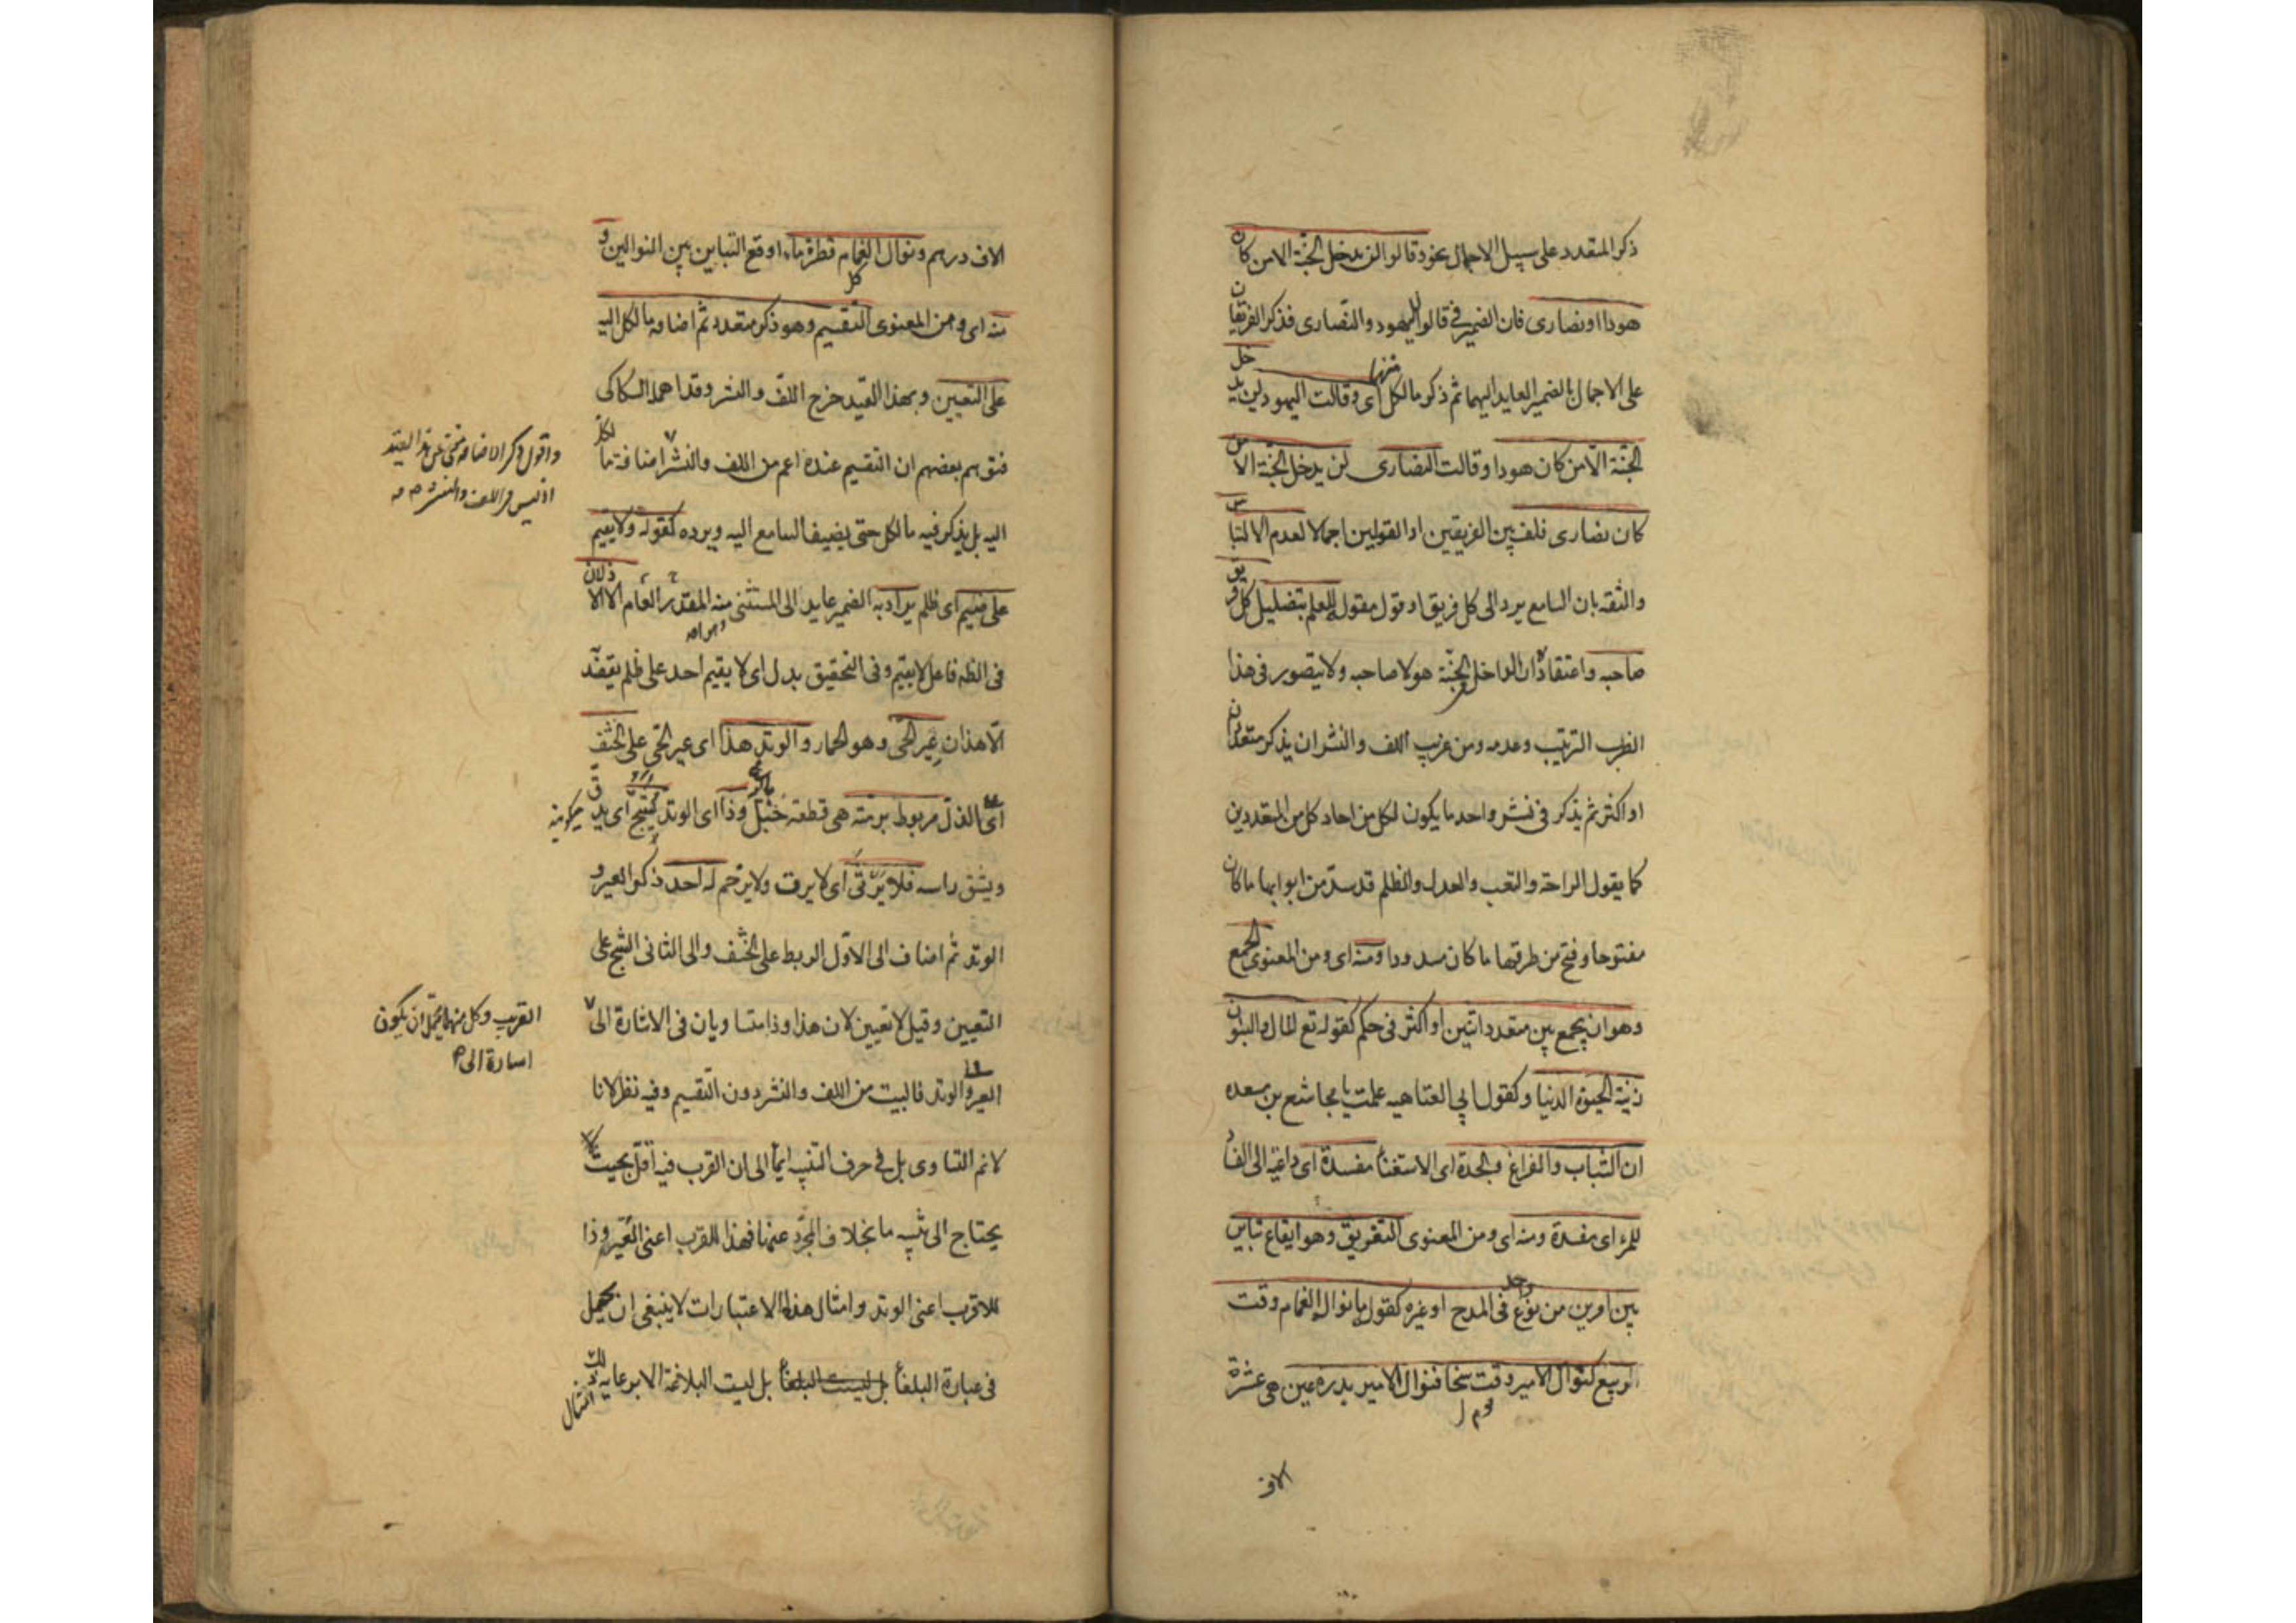 ذكر المتعدد على سبيل الاجمال نحو وقالوا لن يدخل الجنة الا من كان
هودا او نصارى فان الضمير في قالوا لليهود والنصارى فذكر الفريقان
على الاجمال بالضمير العايد اليهما ثم ذكر ما لكل منهما اى وقالت اليهود لن يدخل
الجنة الا من كان هودا وقالت النصارى لن يدخل الجنة الا من
كان نصارى فلف بين الفريقين او القولين اجمالا لعدم الالتباس
والثقة بان السامع يرد الى كل فريق او قول مقوله للعلم بتضليل كل فريق
صاحبه واعتقاده ان الداخل الجنة هو لا صاحبه ولا يتصور فى هذا
الضرب الترتيب وعدمه ومن غريب اللف والنشر ان يذكر متعددان
او اكثر ثم يذكر فى نشر واحد ما يكون لكل من احاد كل من المتعددين
كما يقول الراحة والتعب والعدل والظلم قد سد من ابوابها ما كان
مفتوحا وفتح من طرقها ما كان مسدودا ومنه اى ومن المعنوى الجمع
وهو ان يجمع بين متعدد اثنين او اكثر فى حكم كقوله تع المال والبنون
زينة الحيوة الدنيا وكقول ابي العتاهيه علمت يا مجاشع بن مسعده
ان الشباب والفراغ والجدة اى الاستغناء مفسدة اى داعية الى الفساد
للمرء اى مفسدة ومنه اى ومن المعنوى التفريق وهو ايقاع تباين
بين امرين من نوع واحد فى المدح او غيره كقوله ما نوال الغمام وقت
الربيع كنوال الامير وقت سخا فنوال الامير بدرة عين هى عشرة
يوم
الاف
الاف درهم ونوال الغمام قطرة ماء اوقع التباين بين النوالين و
منه اى ومن المعنوى التقسيم وهو ذكر متعدد ثم اضافة ما لكل اليه
على التعيين وبهذا القيد خرج اللف والنشر وقد اهمله السكاكى
فتوهم بعضهم ان التقسيم عنده اعم من اللف والنشر اضافة ما لكل
اليه بل يذكر فيه ما لكل حتى يضيفه السامع اليه ويرده كقوله ولا يقيم
على ضيم اى ظلم يراد به الضمير عايد الى المستثنى منه المقدر العام الا الاذلان
فى الظه فاعل لا يقيم وفى التحقيق بدل اى لا يقيم احد على ظلم يقصد
الا هذان عير الحى وهو الحمار والوتد هذا اى عير الحى على الخسف
اى الذل مربوط برمته هى قطعة حبل وذا اى الوتد يشج اى يدق
ويشق راسه فلا يرثى اى لا يرق ولا يرحم له احد ذكر العير و
الوتد ثم اضاف الى الاول الربط على الخسف والى الثانى الشج على
التعيين وقيل لا تعيين لان هذا وذا متساويان فى الاشارة الى
العير والوتد فالبيت من اللف والنشر دون التقسيم وفيه نظر لانا
لانم التساوى بل في حرف التنبيه ايماء الى ان القرب فيه اقل بحيث
يحتاج الى تنبيه ما بخلاف المجرد عنها فهذا للقرب اعنى العير وذا
للاقرب اعنى الوتد وامثال هذه الاعتبارات لا ينبغى ان يهمل
فى عبارة البلغاء بل ليست البلغاء بل ليست البلاغة الا برعاية
امثال
واقول ذكر الاضافة مغنى عن هذا القيد
اذ ليس فى اللف والنشر
القريب وكل منهما يحتمل ان يكون
اشارة الى